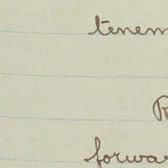 tenem
forwa